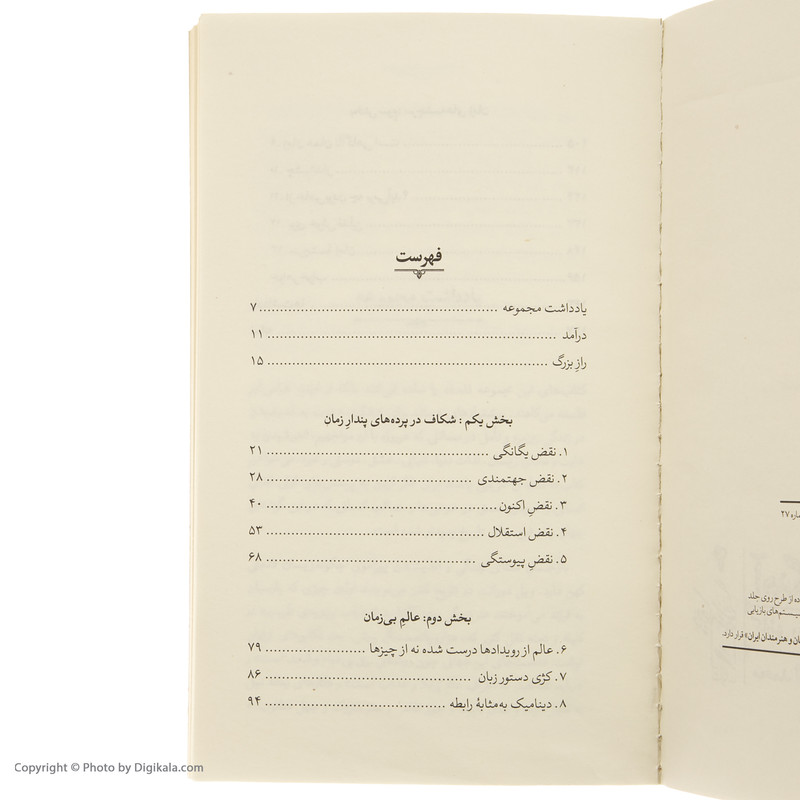 فهرست
یادداشت مجموعه ........ ۷
درآمد ........ ۱۱
رازِ بزرگ ........ ۱۵
بخش یکم: شکاف در پرده‌های پندارِ زمان
۱. نقض یگانگی ........ ۲۱
۲. نقض جهتمندی ........ ۲۸
۳. نقضِ اکنون ........ ۴۰
۴. نقض استقلال ........ ۵۳
۵. نقضِ پیوستگی ........ ۶۸
بخش دوم: عالمِ بی‌زمان
۶. عالم از رویدادها درست شده نه از چیزها ........ ۷۹
۷. کژی دستور زبان ........ ۸۶
۸. دینامیک به‌مثابهٔ رابطه ........ ۹۴
۲۷
از طرح روی جلد
سیستم‌های بازیابی
و هنرمندان ایران» قرار دارد.
Copyright © Photo by Digikala.com